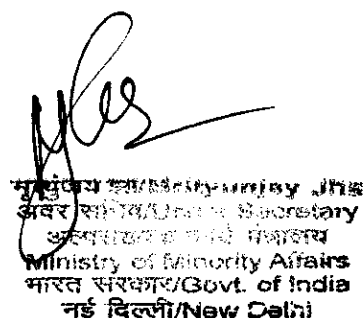 मृत्युंजय झा/Mrityunjay Jha
अवर सचिव/Under Secretary
अल्पसंख्यक कार्य मंत्रालय
Ministry of Minority Affairs
भारत सरकार/Govt. of India
नई दिल्ली/New Delhi